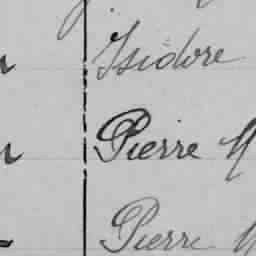 Isidore
Pierre
Pierre